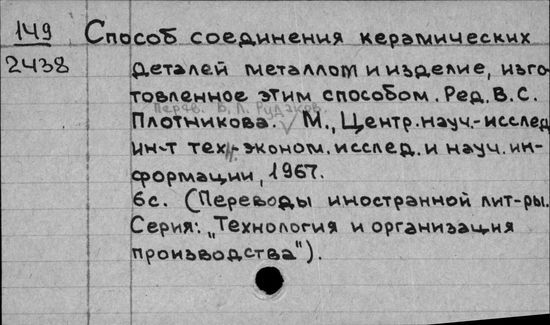 149
2438
Способ соединения керамических
деталей металлом и изделие, изго-
товленное этим способом. Ред. В. С.
Перев. В. Л. Рудаков
Плотникова. М., Центр. науч.-исслед.
ин-т техн.-эконом. исслед. и науч. ин-
формации, 1967.
6с. (Переводы иностранной лит-ры.
Серия: „Технология и организация
производства").